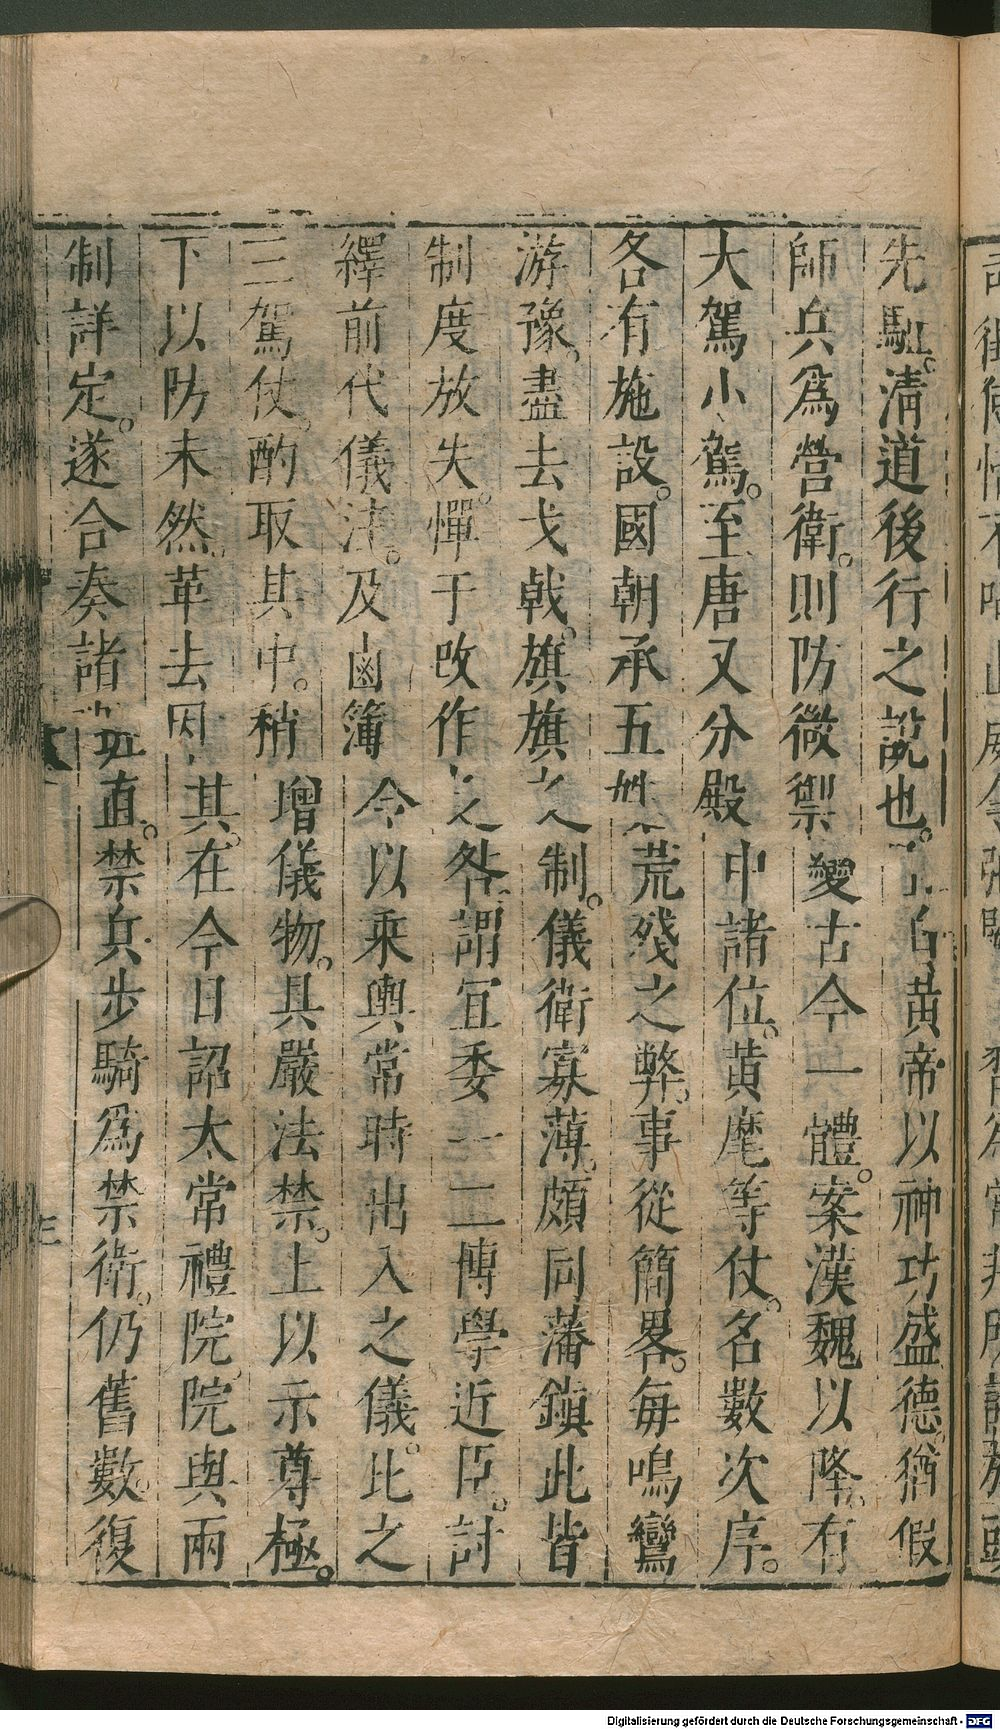 先駈。清道後行之說也。自黃帝以神功盛德。猶假
師兵爲營衛。則防微禦變古今一體。案漢魏以降。有
大駕小駕。至唐又分殿中諸位。黃麾等仗。名數次序。
各有施設。國朝承五代荒殘之弊。事從簡畧。每鳴鸞
游豫。盡去戈戟。旗旗之制。儀衛寡薄。頗同藩鎮此皆
制度放失。憚于改作之咎。謂宜委一二博學近臣。討
繹前代儀法。及鹵簿令以乘輿常時出入之儀。比之
三駕仗。酌取其中。稍增儀物。具嚴法禁。上以示尊極。
下以防未然。革去因其。在今日詔太常禮院。院與兩
制詳定。遂合奏諸班直。禁兵步騎爲禁衛。仍舊數。復
Digitalisierung gefördert durch die Deutsche Forschungsgemeinschaft - DFG